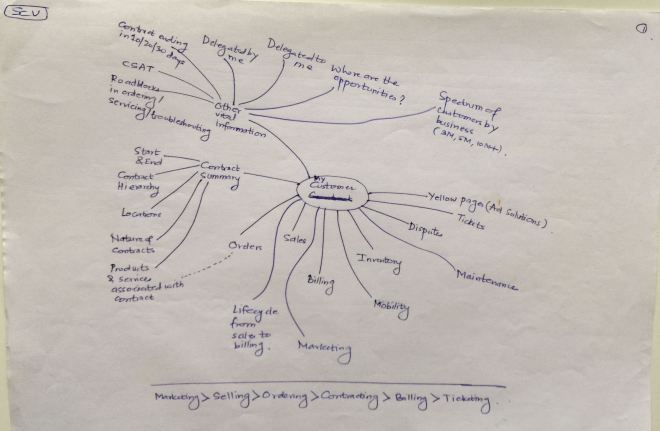 SCV
1
Contract ending
in 10/20/30 days
Delegated by
me
Delegated to
me
Where are the
opportunities?
CSAT
Roadblocks
in ordering/
servicing/troubleshooting
Other
vital
information
Spectrum of
customers by
business
(3M, 5M, 10M+).
Start
& End
Contract
Summary
Contract
Hierarchy
Locations
Nature of
Contracts
Products
& services
associated with
contract
My
Customer
Yellow pages (Ad Solutions)
Tickets
Dispute
Maintenance
Inventory
Mobility
Orders
Sales
Billing
Lifecycle
from
sales to
billing.
Marketing
Marketing > Selling > Ordering > Contracting > Billing > Ticketing.